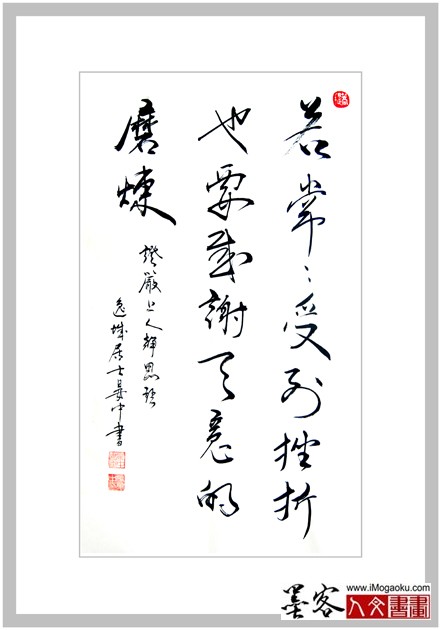 若常々受到挫折
也要感謝天意的
磨煉
證嚴上人靜思語
城居士 中書
www.iMogaoku.com
墨客 人文書畫